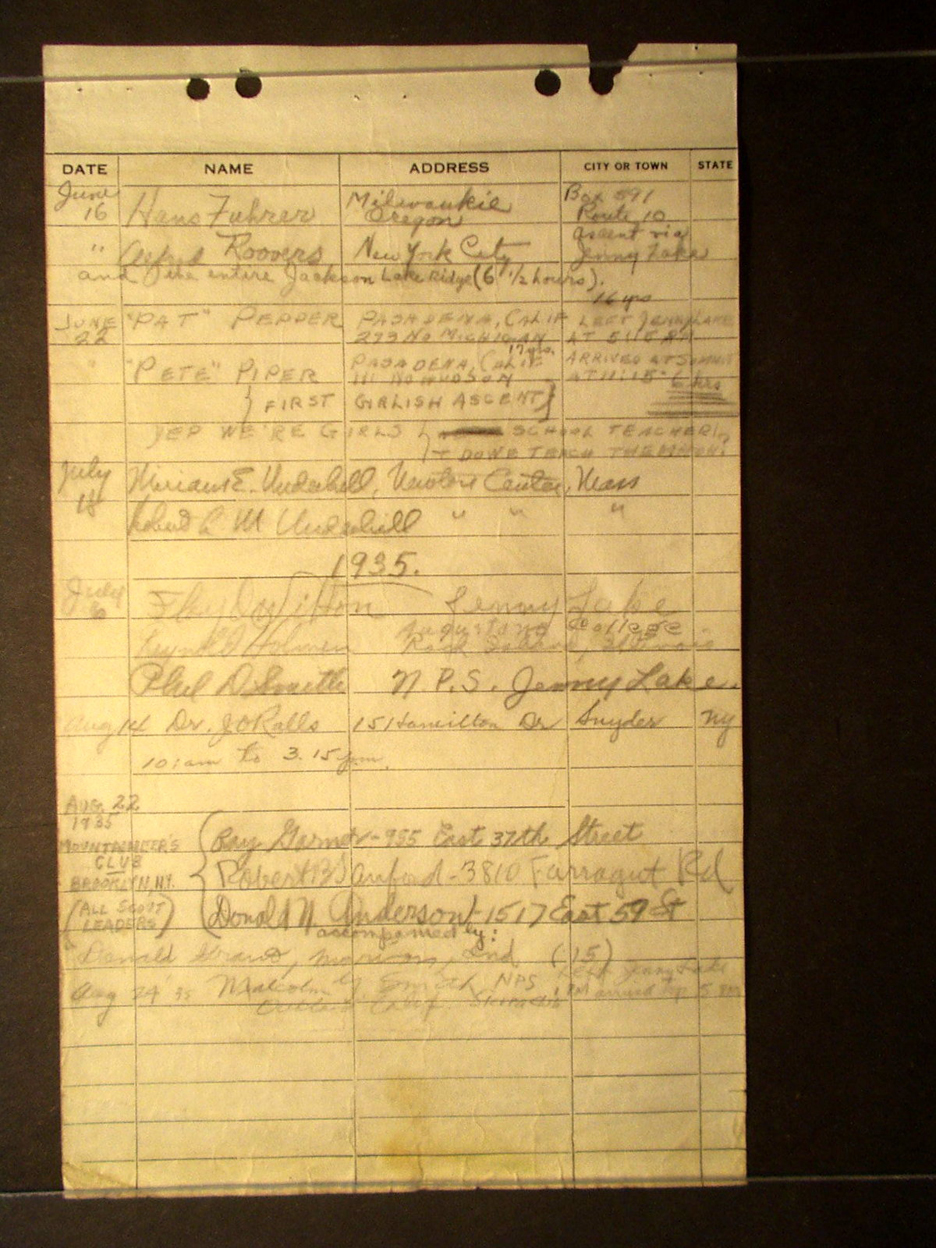 DATE NAME ADDRESS CITY OR TOWN STATE
June 16 Hans Fuhrer Milwaukie Oregon Box 591 Route 10
" Alfred Roovers New York City ascent via Jenny Lake
and the entire Jackson Lake Ridge (6 1/2 hours).
JUNE 22 "PAT" PEPPER PASADENA, CALIF 293 NO MICHIGAN 16 yrs LEFT JENNY LAKE AT 5:15 AM
" "PETE" PIPER PASADENA, CALIF 17 yrs. 111 NO HUDSON ARRIVED AT SUMMIT AT 11:15 - 6 hrs
} FIRST GIRLISH ASCENT }
YEP WE'RE GIRLS } SCHOOL TEACHER!
DONE TEACH THEM
July 18 Miriam E. Underhill, Newton Center, Mass
Robert L M Underhill " " "
1935.
July 6 Floyd Wilson Jenny Lake
Holmen Augustana College Rock Island, Illinois
Phil D. Smith N.P.S. Jenny Lake.
Aug 14 Dr. J O Ralls 151 Hamilton Dr Snyder NY
10: am to 3.15 pm.
AUG. 22
1935
MOUNTAINEER'S
CLUB
BROOKLYN, N.Y.
(ALL SCOUT
LEADERS)
Ray Garner - 955 East 37th Street
Robert B Sanford - 3810 Farragut Rd
Donald N Anderson - 1517 East 59 St
accompanied by:
Donald Grant, Marion, Ind. (15)
Aug 24 35 Malcolm Smith NPS Left Jenny Lake
PM arrived top 5 PM
Calif.